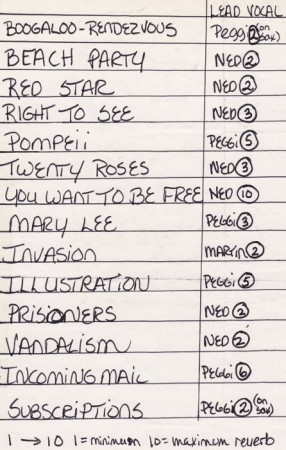 LEAD VOCAL
BOOGALOO-RENDEZVOUS PEGGi 2 (on sax)
BEACH PARTY NED 2
RED STAR NED 2
RIGHT TO SEE NED 3
POMPEii PEGGi 5
TWENTY ROSES NED 3
YOU WANT TO BE FREE NED 10
MARY LEE PEGGi 3
INVASION MARTIN 2
ILLUSTRATION PEGGi 5
PRISiONERS NED 2
VANDALISM NED 2
INCOMING MAIL PEGGi 6
SUBSCRIPTIONS PEGGi 2 (on sax)
1 → 10 1=minimum 10=maximum reverb